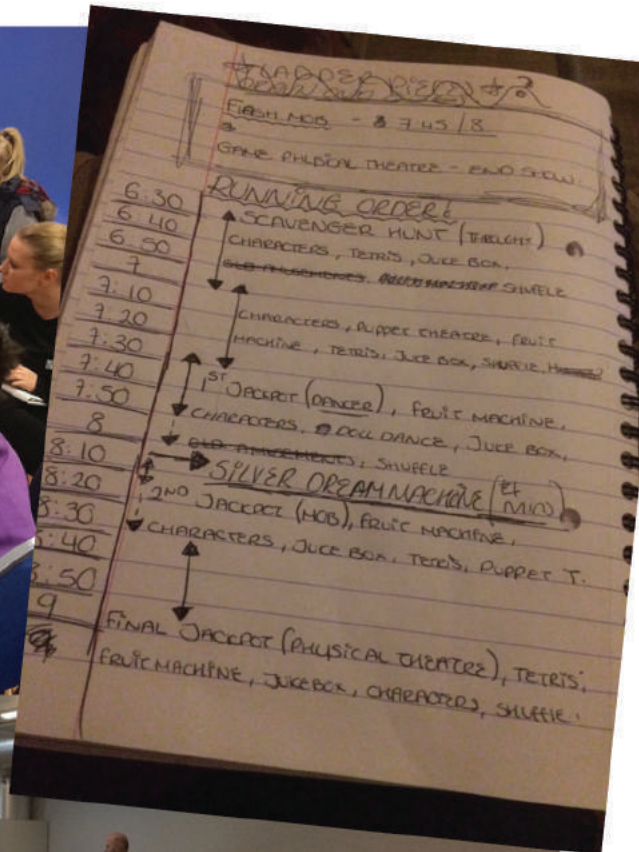 FLASH MOB - 7:45 / 8
GAME PHYSICAL THEATRE - END SHOW.
RUNNING ORDER!
6:30
6:40
6:50
7
7:10
7:20
7:30
7:40
7:50
8
8:10
8:20
8:30
8:40
8:50
9
SCAVENGER HUNT
CHARACTERS, TETRIS, JUCE BOX,
OLD AMUSEMENTS, SHUFFLE
CHARACTERS, PUPPET THEATRE, FRUIT
MACHINE, TETRIS, JUCE BOX, SHUFFLE,
1ST JACKPOT (DANCER), FRUIT MACHINE,
CHARACTERS, DOLL DANCE, JUCE BOX,
OLD AMUSEMENTS, SHUFFLE
SILVER DREAM MACHINE MIN)
2ND JACKPOT (MOB), FRUIT MACHINE,
CHARACTERS, JUCE BOX, TETRIS, PUPPET T.
FINAL JACKPOT (PHYSICAL THEATRE), TETRIS,
FRUIT MACHINE, JUKEBOX, CHARACTERS, SHUFFLE.